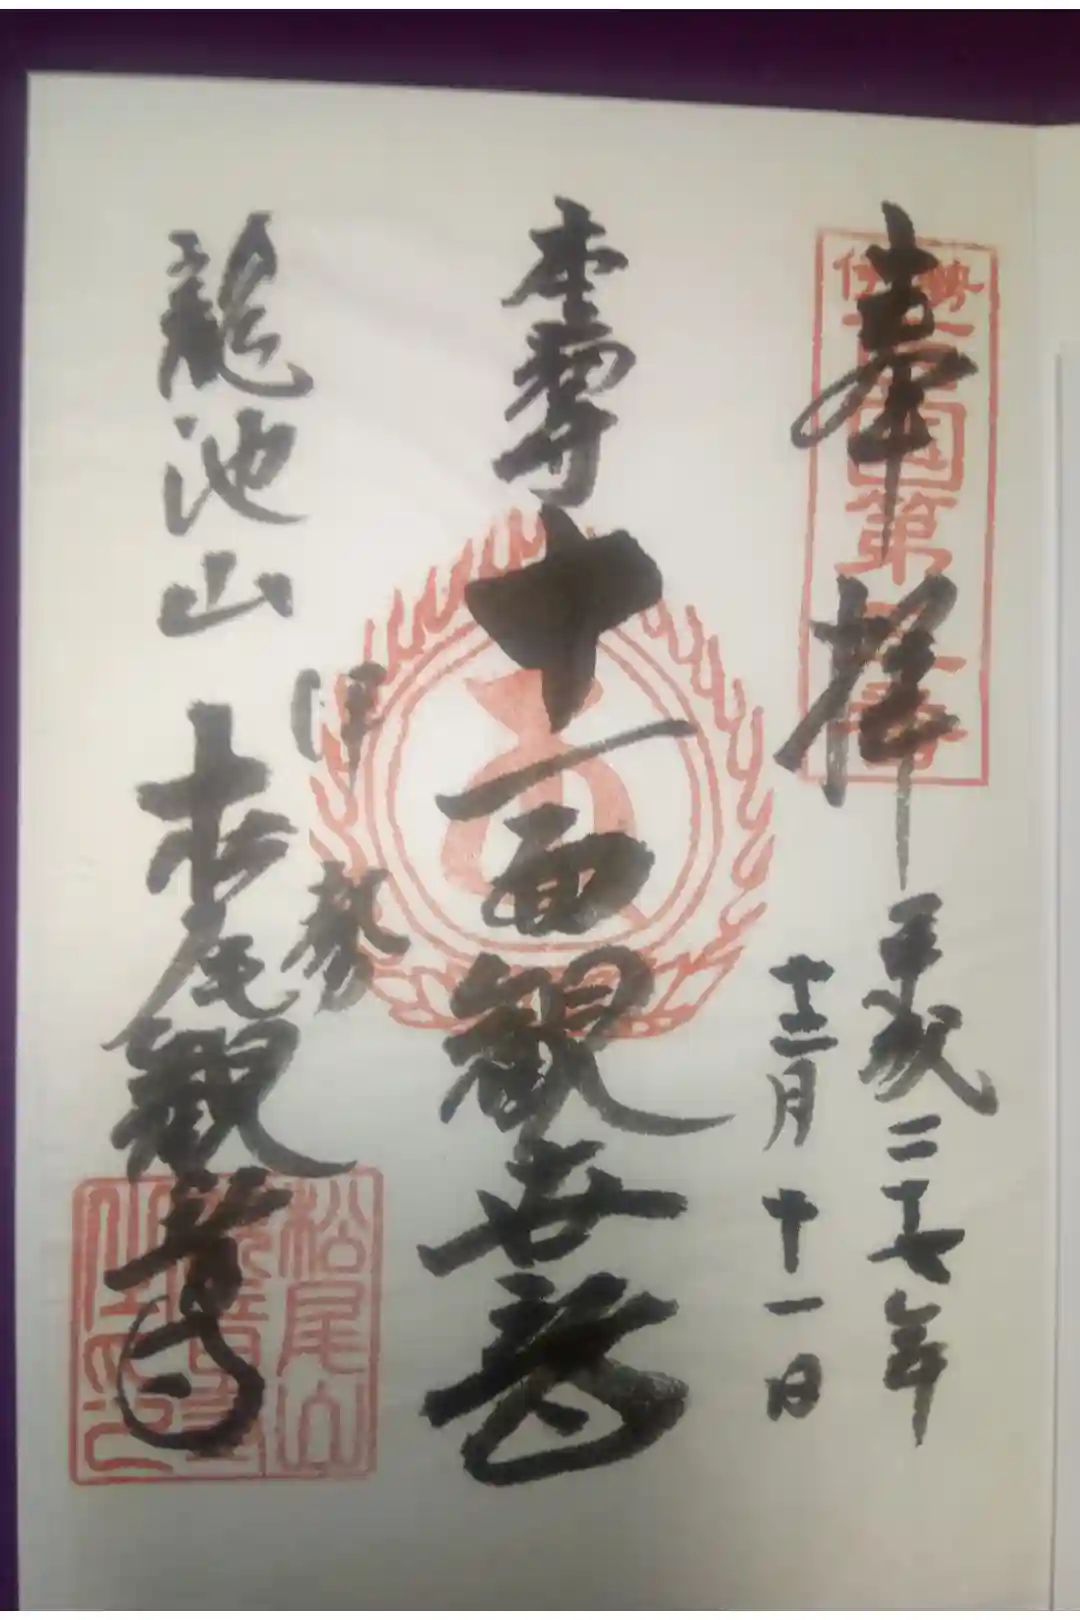 奉拝
平成二十七年
十二月十一日
本尊
十一面観世音
伊勢
龍池山
松尾観音寺
松尾山